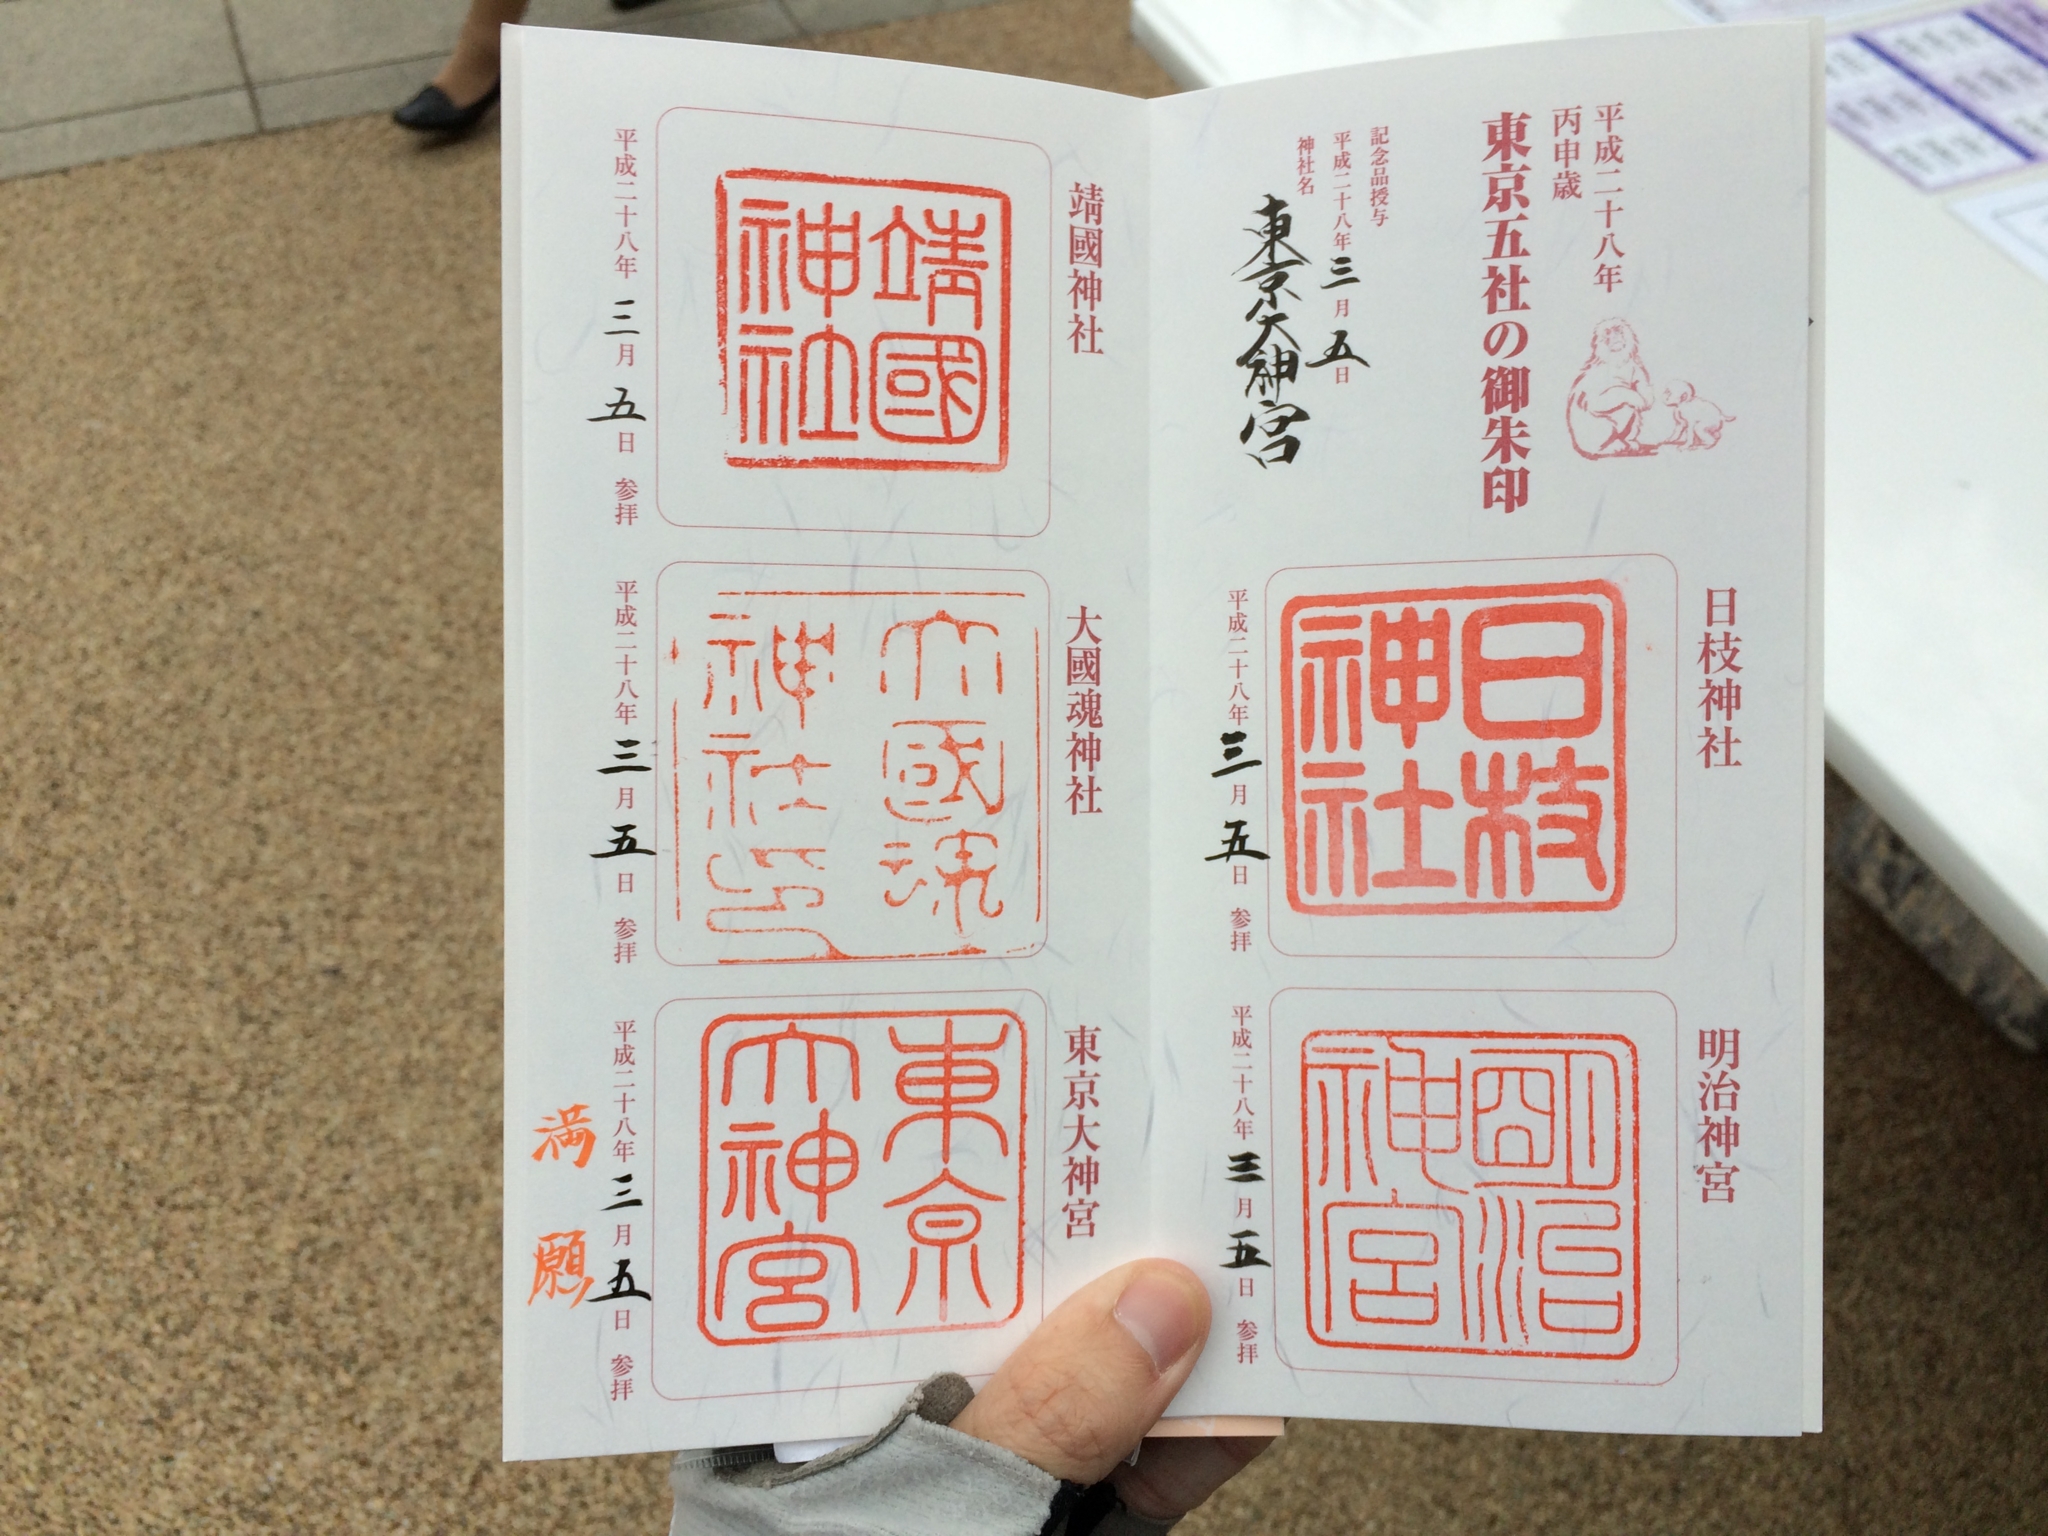 平成二十八年
丙申歳
東京五社の御朱印
記念品授与
平成二十八年三月五日
神社名
東京大神宮
日枝神社
日枝
神社
平成二十八年三月五日 参拝
明治神宮
明治
神宮
平成二十八年三月五日 参拝
靖國神社
靖國
神社
平成二十八年三月五日 参拝
大國魂神社
大國魂
神社印
平成二十八年三月五日 参拝
東京大神宮
東京
大神宮
平成二十八年三月五日 参拝
満願